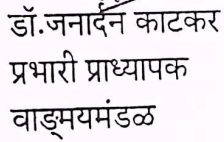 डॉ.जनार्दन काटकर
प्रभारी प्राध्यापक
वाङ्मयमंडळ